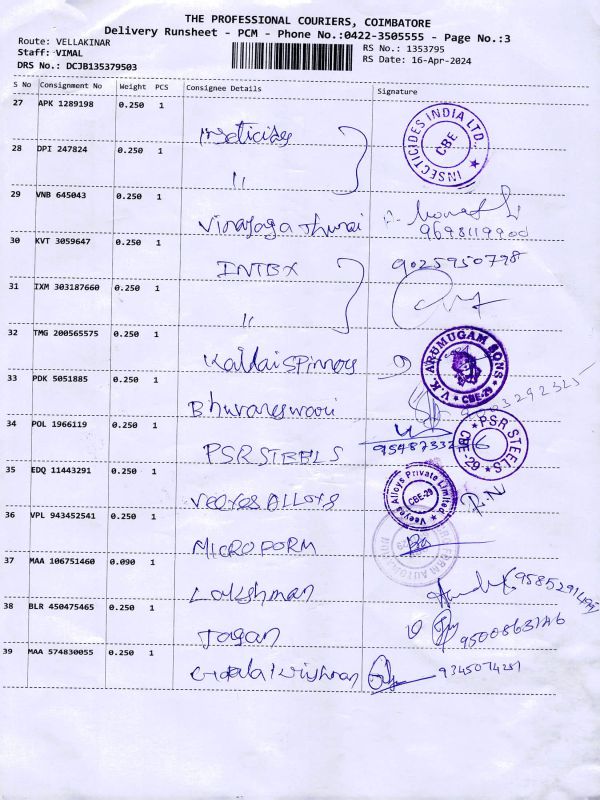 THE PROFESSIONAL COURIERS, COIMBATORE
Delivery Runsheet - PCM - Phone No.:0422-3505555 - Page No.:3
Route: VELLAKINAR
RS No.: 1353795
Staff: VIMAL
RS Date: 16-Apr-2024
DRS No.: DCJB135379503
S No Consignment No Weight PCS Consignee Details Signature
27 APK 1289198 0.250 1
INSECTICIDES INDIA LTD. CBE
28 DPI 247824 0.250 1
"
29 VNB 645043 0.250 1
Vinayaga Thurai
9698119900
30 KVT 3059647 0.250 1
INTEX 9025950798
31 IXM 303187660 0.250 1
"
32 TMG 200565575 0.250 1
Kaldai Spinners
V.K. ARUMUGAM SONS CBE-29
33 PDK 5051885 0.250 1
Bhuvaneswari
34 POL 1966119 0.250 1
PSR STEELS
PSR STEELS CBE-29
35 EDQ 11443291 0.250 1
VEEYES ALLOYS
Veeyes Alloys Private Limited CBE-29
36 VPL 943452541 0.250 1
MICROFORM
37 MAA 106751460 0.090 1
Lakshman
38 BLR 450475465 0.250 1
Jagan
39 MAA 574830055 0.250 1
Gopalakrishnan